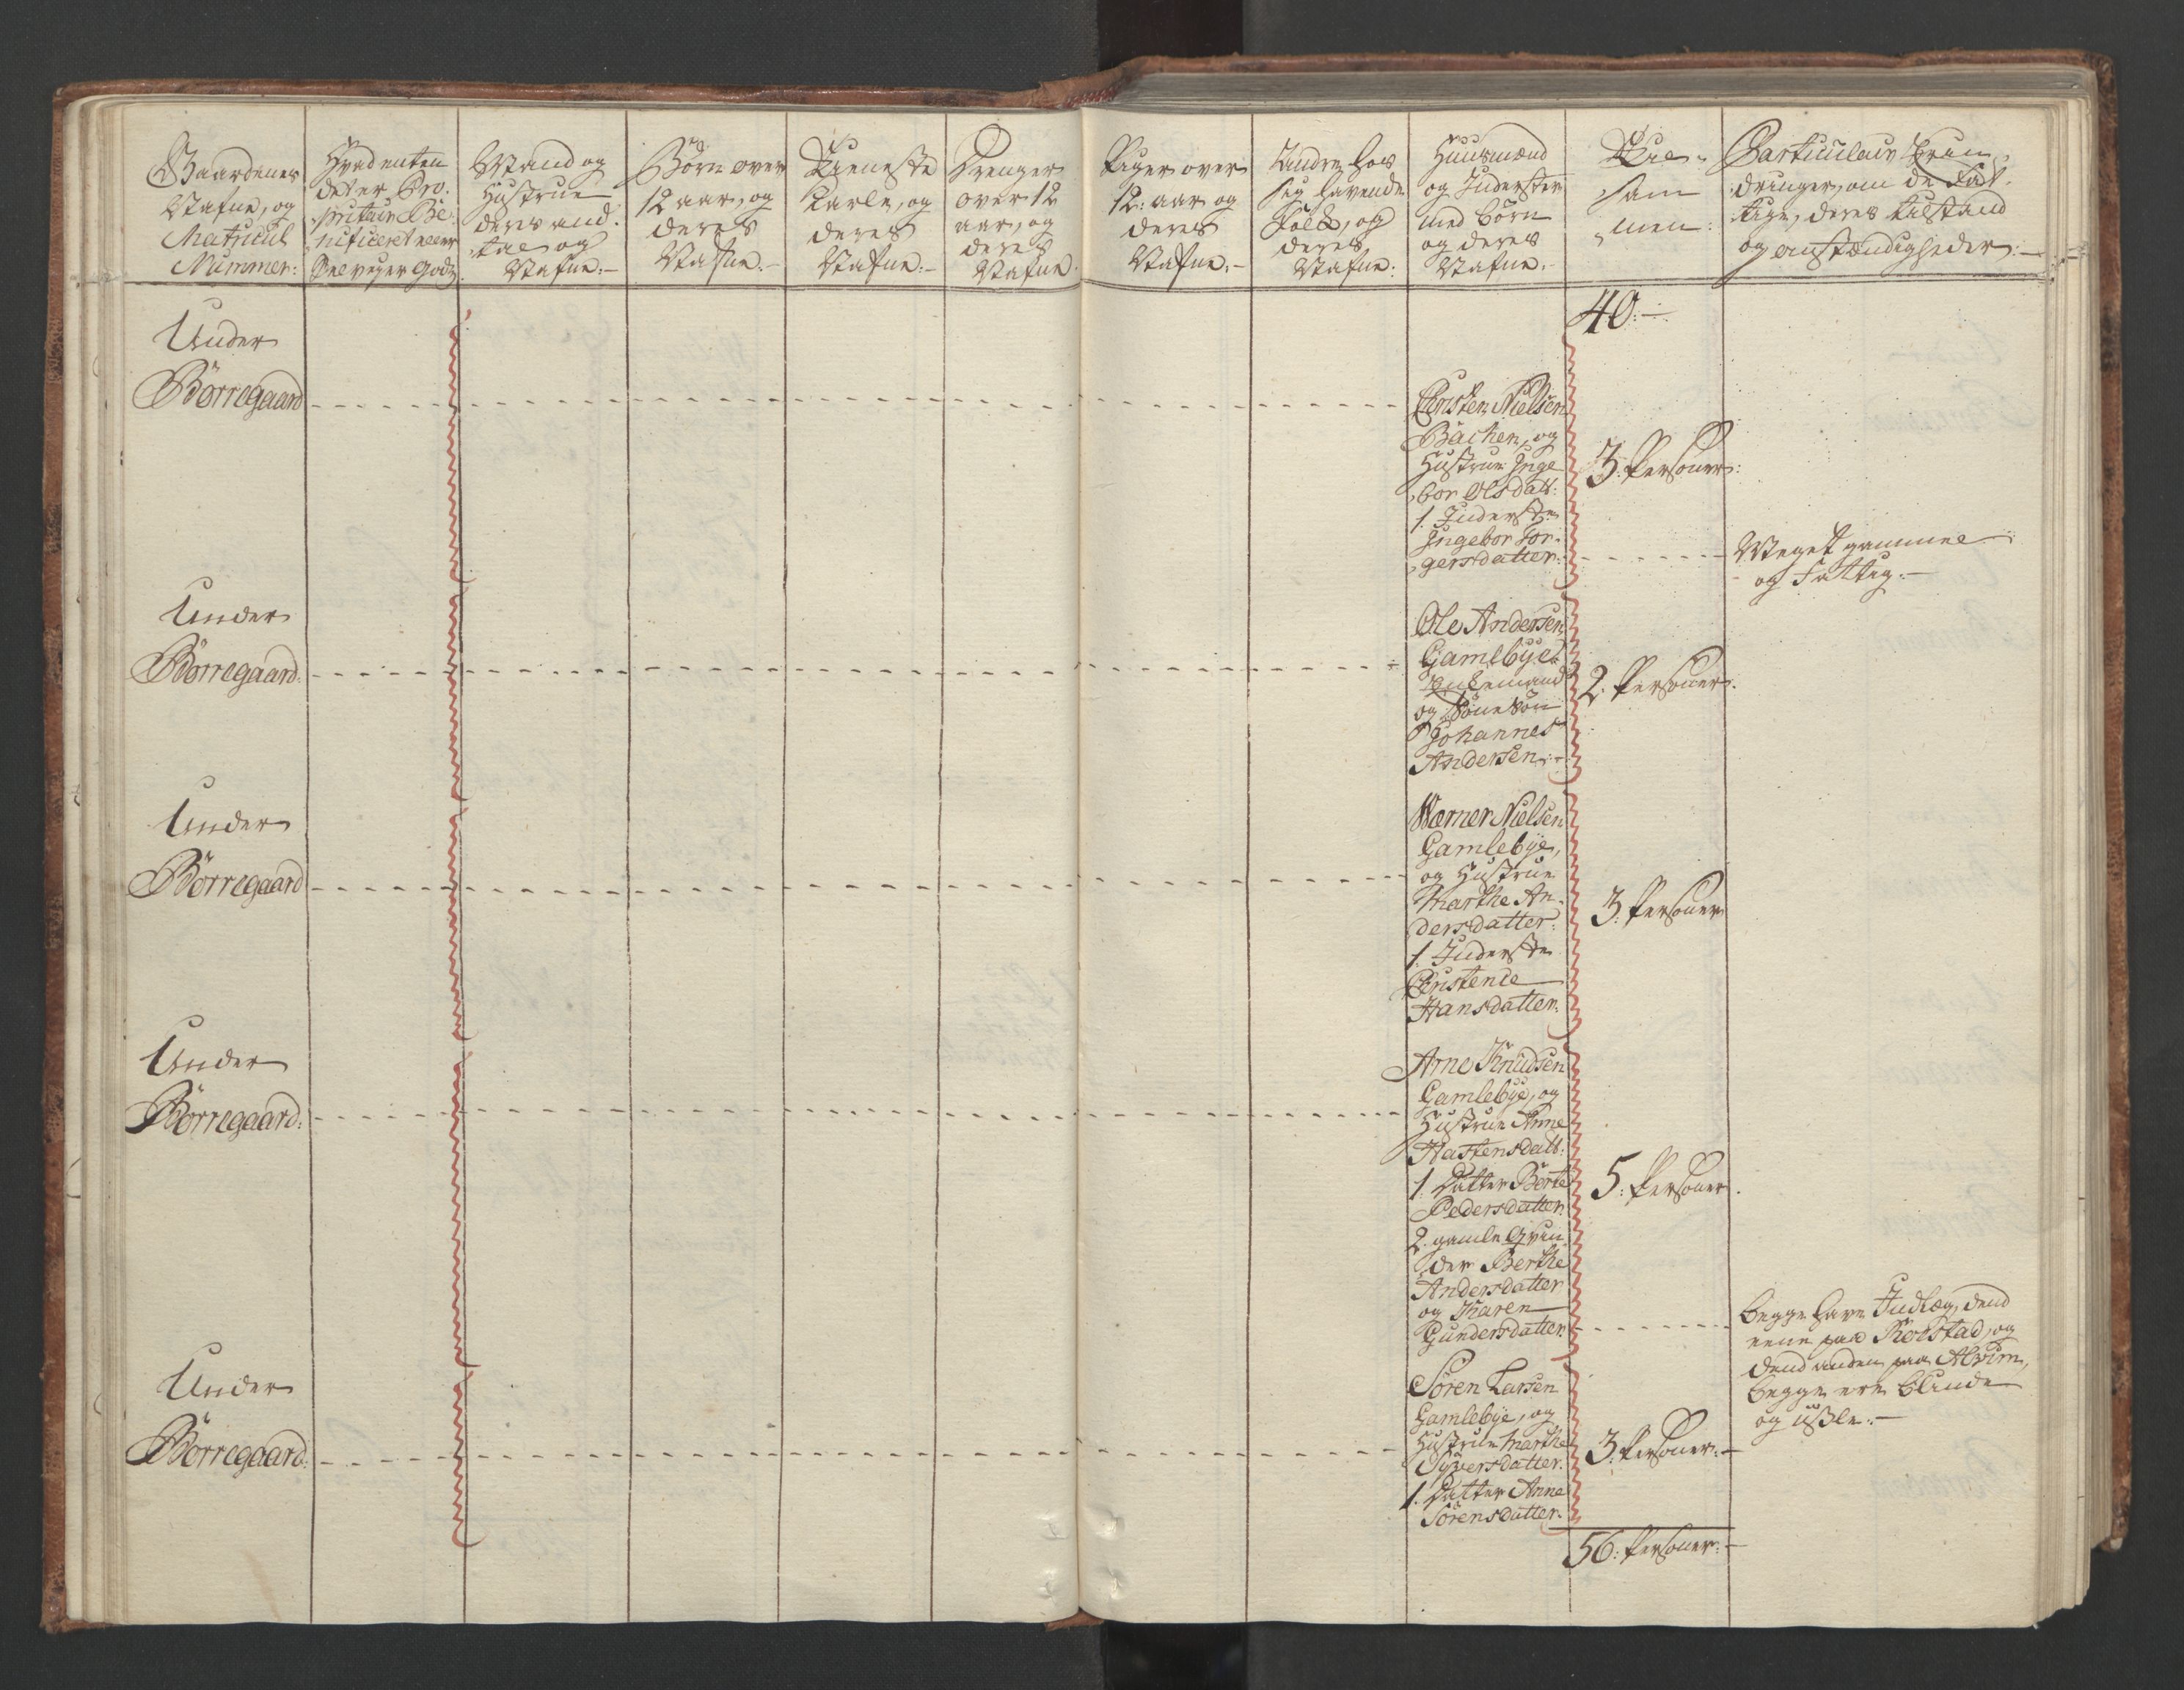 Gaardenes
Nafne, og
Matricul
Nummer:
Hvad enten
det er Pro-
pritair Be-
nificeret eller
Selveyer Godz.
Mand og
Hustrue
deres and-
tal og
Nafne:-
Börn over
12 aar, og
deres
Nafne.-
Tieneste
Karle, og
deres
Nafne:-
Drenger
over 12
aar, og
deres
Nafne.
Piger over
12: aar og
deres
Nafne.-
Andre hos
sig havende
Folk, og
deres
Nafne:
Huusmænd
og Inderster
med börn
og deres
Nafne.
Til-
sam
men:
Particulair Erin-
dringer, om de Fat-
tige, deres tilstand
og omstændigheder:-
40:-
Under
Börregaard
Christen Nielsen
Bachen, og
Hustrue Inge
bor Olsdatt:
1. Inderste
Ingebor Tor-
gersdatter:
3: Personer:
Meget gammel
og Fattig:-
Under
Börregaard:
Ole Andersen
Gamlebye
Enkemand
og Söne Sön
Johannes
Andersen:-
2: Personer.
Under
Börregaard
Werner Nielsen
Gamlebye,
og Hustrue
Marthe An-
dersdatter:
1. Inderste
Christence
Hansdatter:
3: Personer
Under
Börregaard:
Arne Knudsen
Gamlebye, og
Hustrue Anne
Hastensdatt:
1. Datter Börte
Pedersdatter
2. gamle Qvin
der Berthe
Andersdatter
og Karen
Gundersdatter
5: Personer.
begge have Indlæg, dend
eene paa Rolstad, og
dend anden paa Alvim,
begge ere blinde
og usle.-
Under
Börregaard:
Sören Larsen
Gamlebye, og
Hustrue Marthe
Syversdatter.
1. Datter Anne
Sörensdatter.
3: Personer:-
56: Personer:-